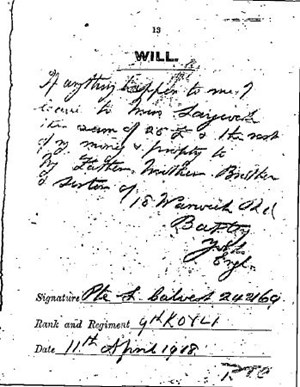 13
WILL.
If anything happen to me, I
leave to Miss
the sum of 25 £ & the rest
of my money & property to
My Father, Mother, Brother
& sisters of 18 Warwick Rd
Batley
Yorks
Engl.
Signature Pte L. Calvert 242169
Rank and Regiment 9th KOYLI
Date 11th April 1918